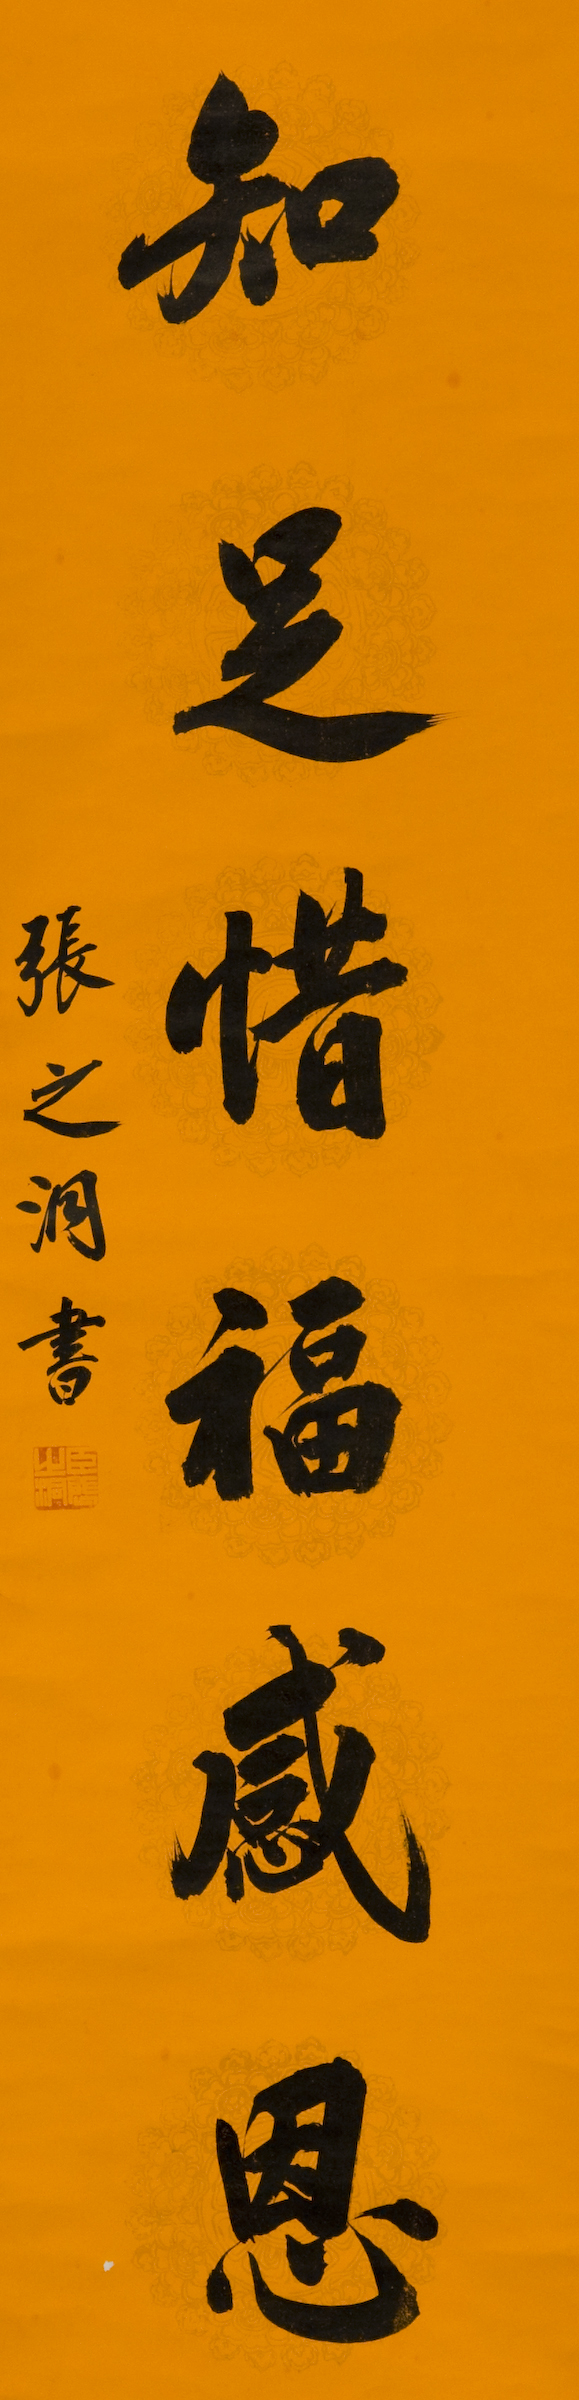 知足惜福感恩
張之洞書